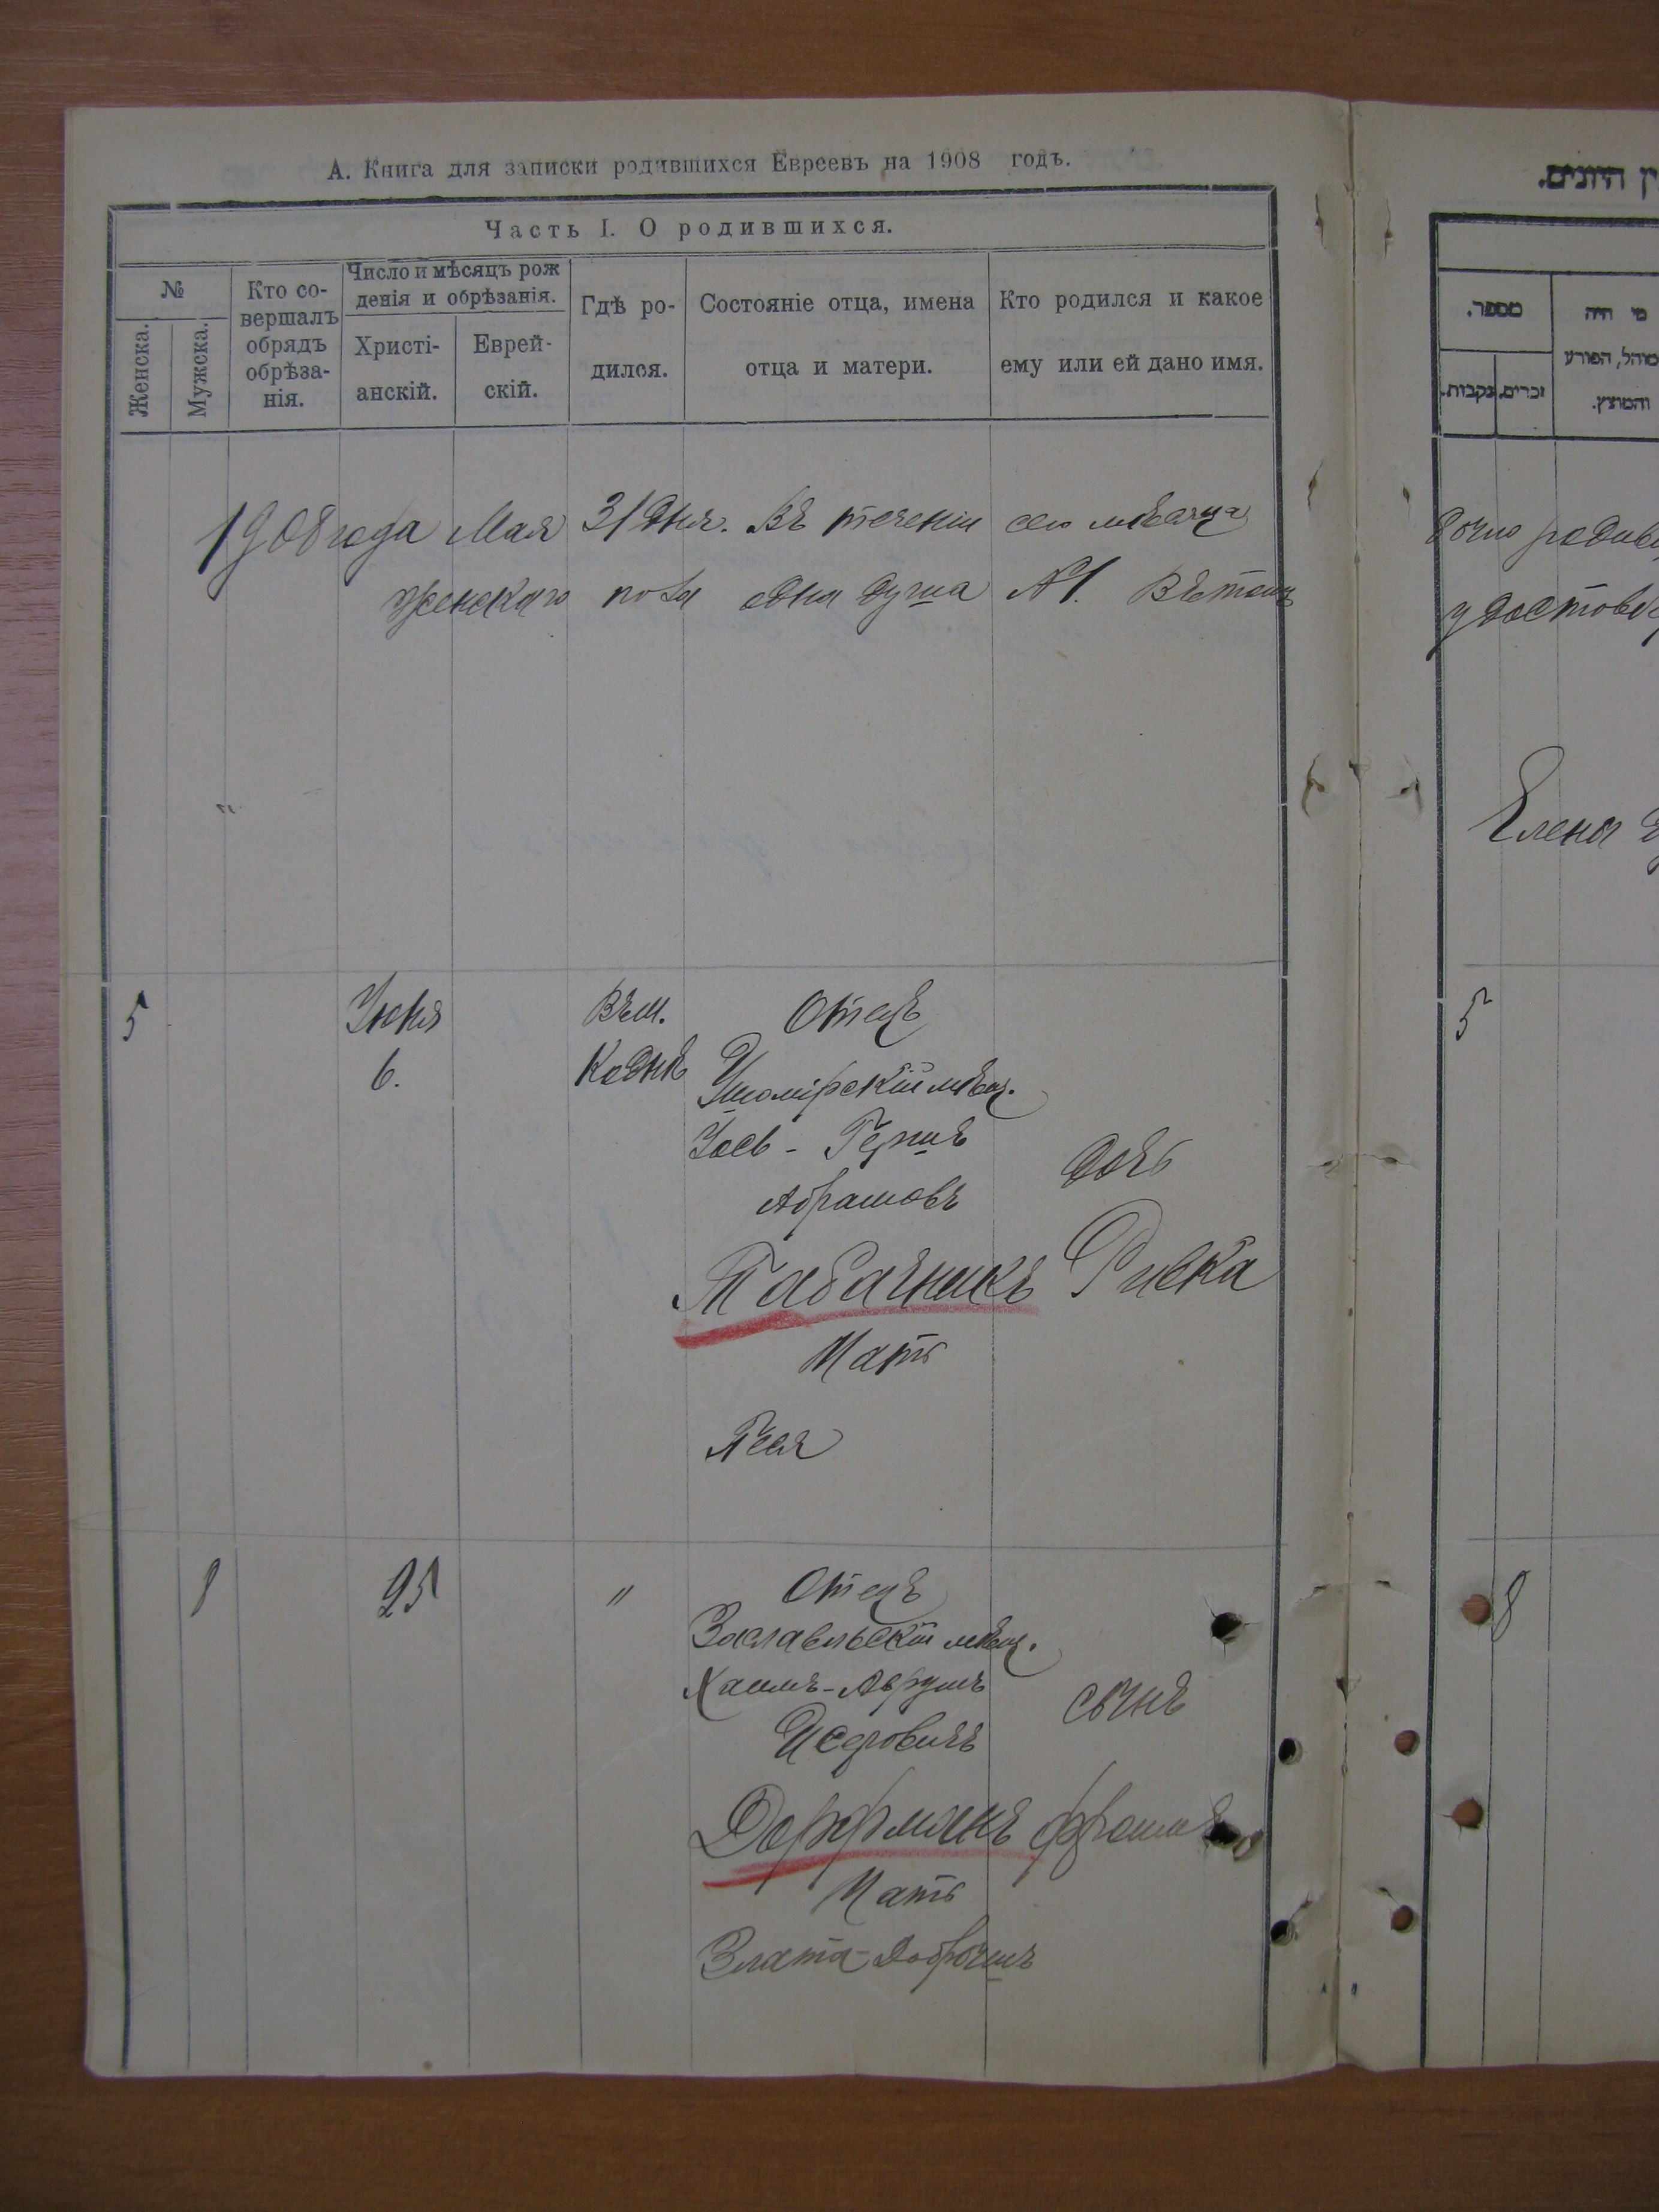 А. Книга для записки родившихся Евреевъ на 1908 годъ.
Часть I. О родившихся.
№
Женска.
Мужска.
Кто со-
вершалъ
обрядъ
обрѣза-
нія.
Число и мѣсяцъ рож
денія и обрѣзанія.
Христі-
анскій.
Еврей-
скій.
Гдѣ ро-
дился.
Состояніе отца, имена
отца и матери.
Кто родился и какое
ему или ей дано имя.
1908 года Мая 31 дня. Въ теченіи сего мѣсяца
женскаго пола одна душа №1. Въ томъ
5
Іюня
6.
Въ м.
Коднѣ
Отецъ
Ушомірскій мѣщ.
Іось - Гершъ
Абрамовъ
Табачникъ
Мать
Песя
дочь
Ривка
8
25
"
Отецъ
Заславльскій мѣщ.
Хаимъ-Аврумъ
Дорфманъ
Мать
Злата-Добрышъ
сынъ
ין היונים.
מספר.
זכרים.
נקבות.
מי היה
מוהל, הפורע
והמוצץ.
удостовѣ
Елена
5
8